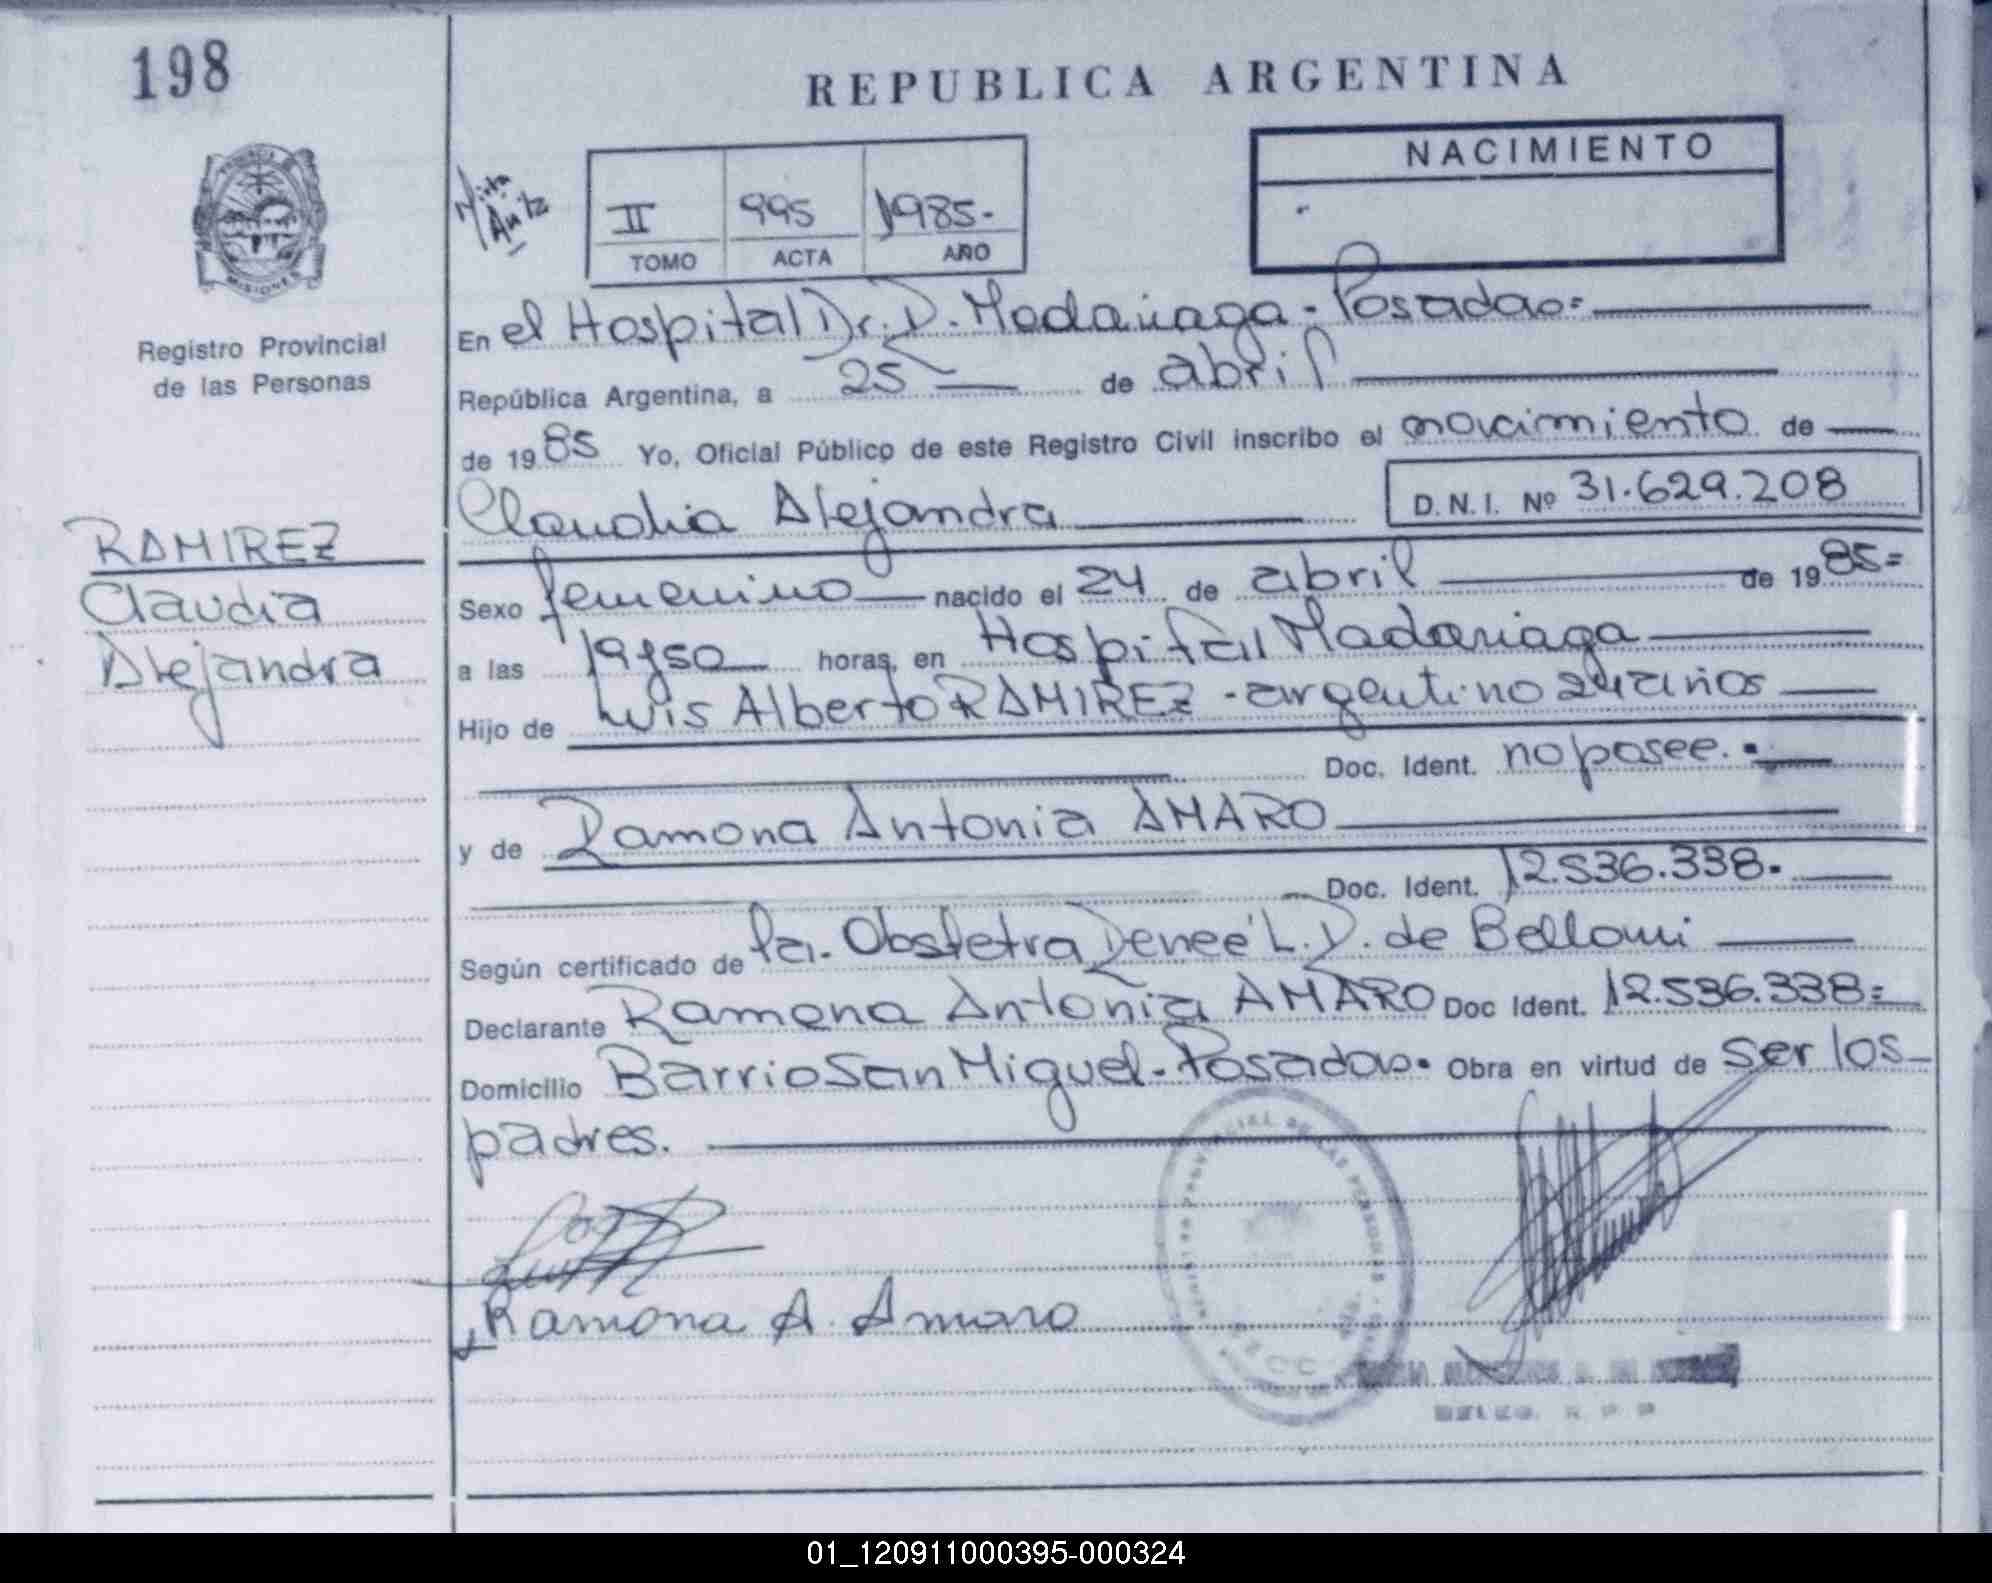 198
REPUBLICA ARGENTINA
NACIMIENTO
II 995 1985.-
TOMO ACTA AÑO
MISIONES
Registro Provincial
de las Personas
RAMIREZ
Claudia
Alejandra
En el Hospital Dr. R. Madariaga - Posadas=
República Argentina, a 25 de abril
de 1985 Yo, Oficial Público de este Registro Civil inscribo el nacimiento de
Claudia Alejandra D.N.I. Nº 31.629.208
Sexo femenino nacido el 24 de abril de 1985=
a las 19y50 horas, en Hospital Madariaga
Hijo de Luis Alberto RAMIREZ - argentino 24 años
Doc. Ident. no posee.
y de Ramona Antonia AMARO
Doc. Ident. 12.536.338.
Según certificado de la. Obstetra Reneé L. D. de Bellomi
Declarante Ramona Antonia AMARO Doc Ident. 12.536.338=
Domicilio Barrio San Miguel - Posadas. Obra en virtud de ser los
padres.
Ramona A. Amaro
01_120911000395-000324